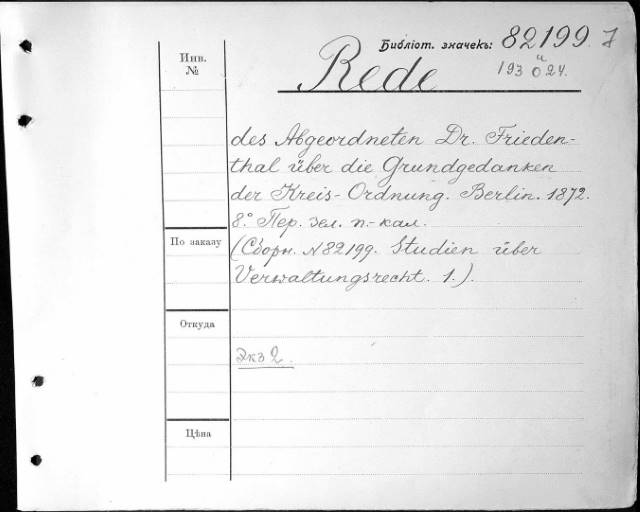 Библіот. значекъ: 82199. 7
и
193 0 24.
Инв.
№
Rede
des Abgeordneten Dr. Frieden-
thal über die Grundgedanken
der Kreis-Ordnung. Berlin. 1872.
8.° Пер. зел. п.-кал.
По заказу
(Сборн. №82199. Studien über
Verwaltungsrecht. 1.).
Откуда
Экз 2.
Цѣна